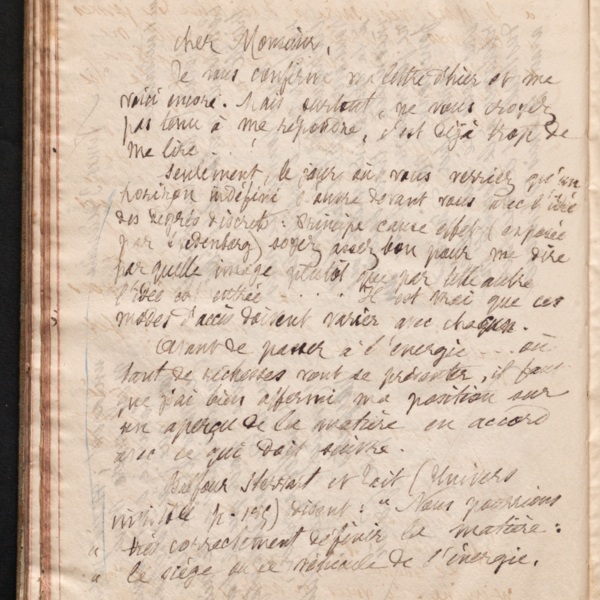 cher Monsieur,
Je vous confirme ma lettre d'hier et me
voici encore. Mais surtout, ne vous croyez
pas tenu à me répondre, c'est déjà trop de
me lire.
Seulement, le jour où vous verriez qu'un
horizon indéfini s'ouvre devant vous avec l'idée
des degrés discrets: Principe cause effet (exposée
par Swedenborg) soyez assez bon pour me dire
par quelle image plutôt que par telle autre
l'idée est entrée . . . . Il est vrai que ces
modes d'accès doivent varier avec chacun.
Avant de passer à l'énergie . . . où
tant de richesses vont se présenter, il faut
que j'ai bien affermi ma position sur
un aperçu de la matière en accord
avec ce qui doit suivre.
Balfour Stewart et Tait (Univers
invisible p. ) disent: "Nous pourrions
" très correctement définir la matière:
" le siège ou le véhicule de l'énergie.